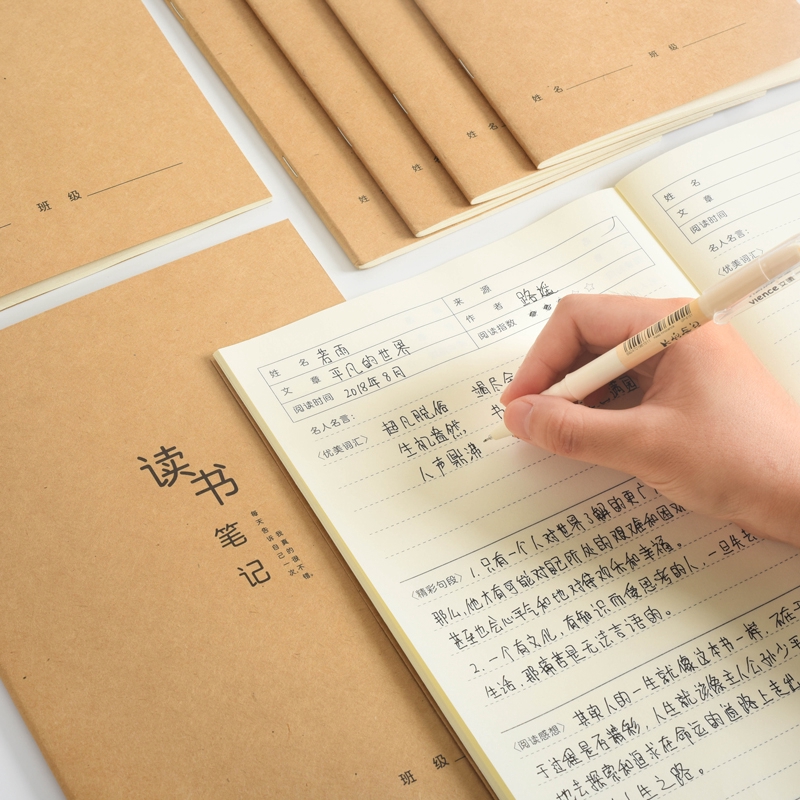 班 级
姓 名
班 级
姓 名
姓
姓
读书
笔记
每天告诉自己一次,
我真的很不错。
班 级
姓 名 若雨
来 源
文 章 平凡的世界
作 者 路遥
阅读时间 2018年8月
阅读指数
名人名言:
〈优美词汇〉 超凡脱俗
生机盎然,
人声鼎沸
〈精彩句段〉 1.只有一个人对世界了解的更广
那么,他才有可能对自己所处的艰难和困
甚至也会心平气和地对待欢乐和幸福。
2.一个有文化,有知识而使思考的人,一旦失去
生活,那痛苦是无法言语的。
〈阅读感想〉 其实人的一生就像这本书一样,不在于
于过程是否精彩,人生就该像主人公孙少平
地去探索和追求在命运的道路上走出
人生之路。
姓 名
文 章
阅读时间
名人名言:
〈优美词汇〉
vience 文渊